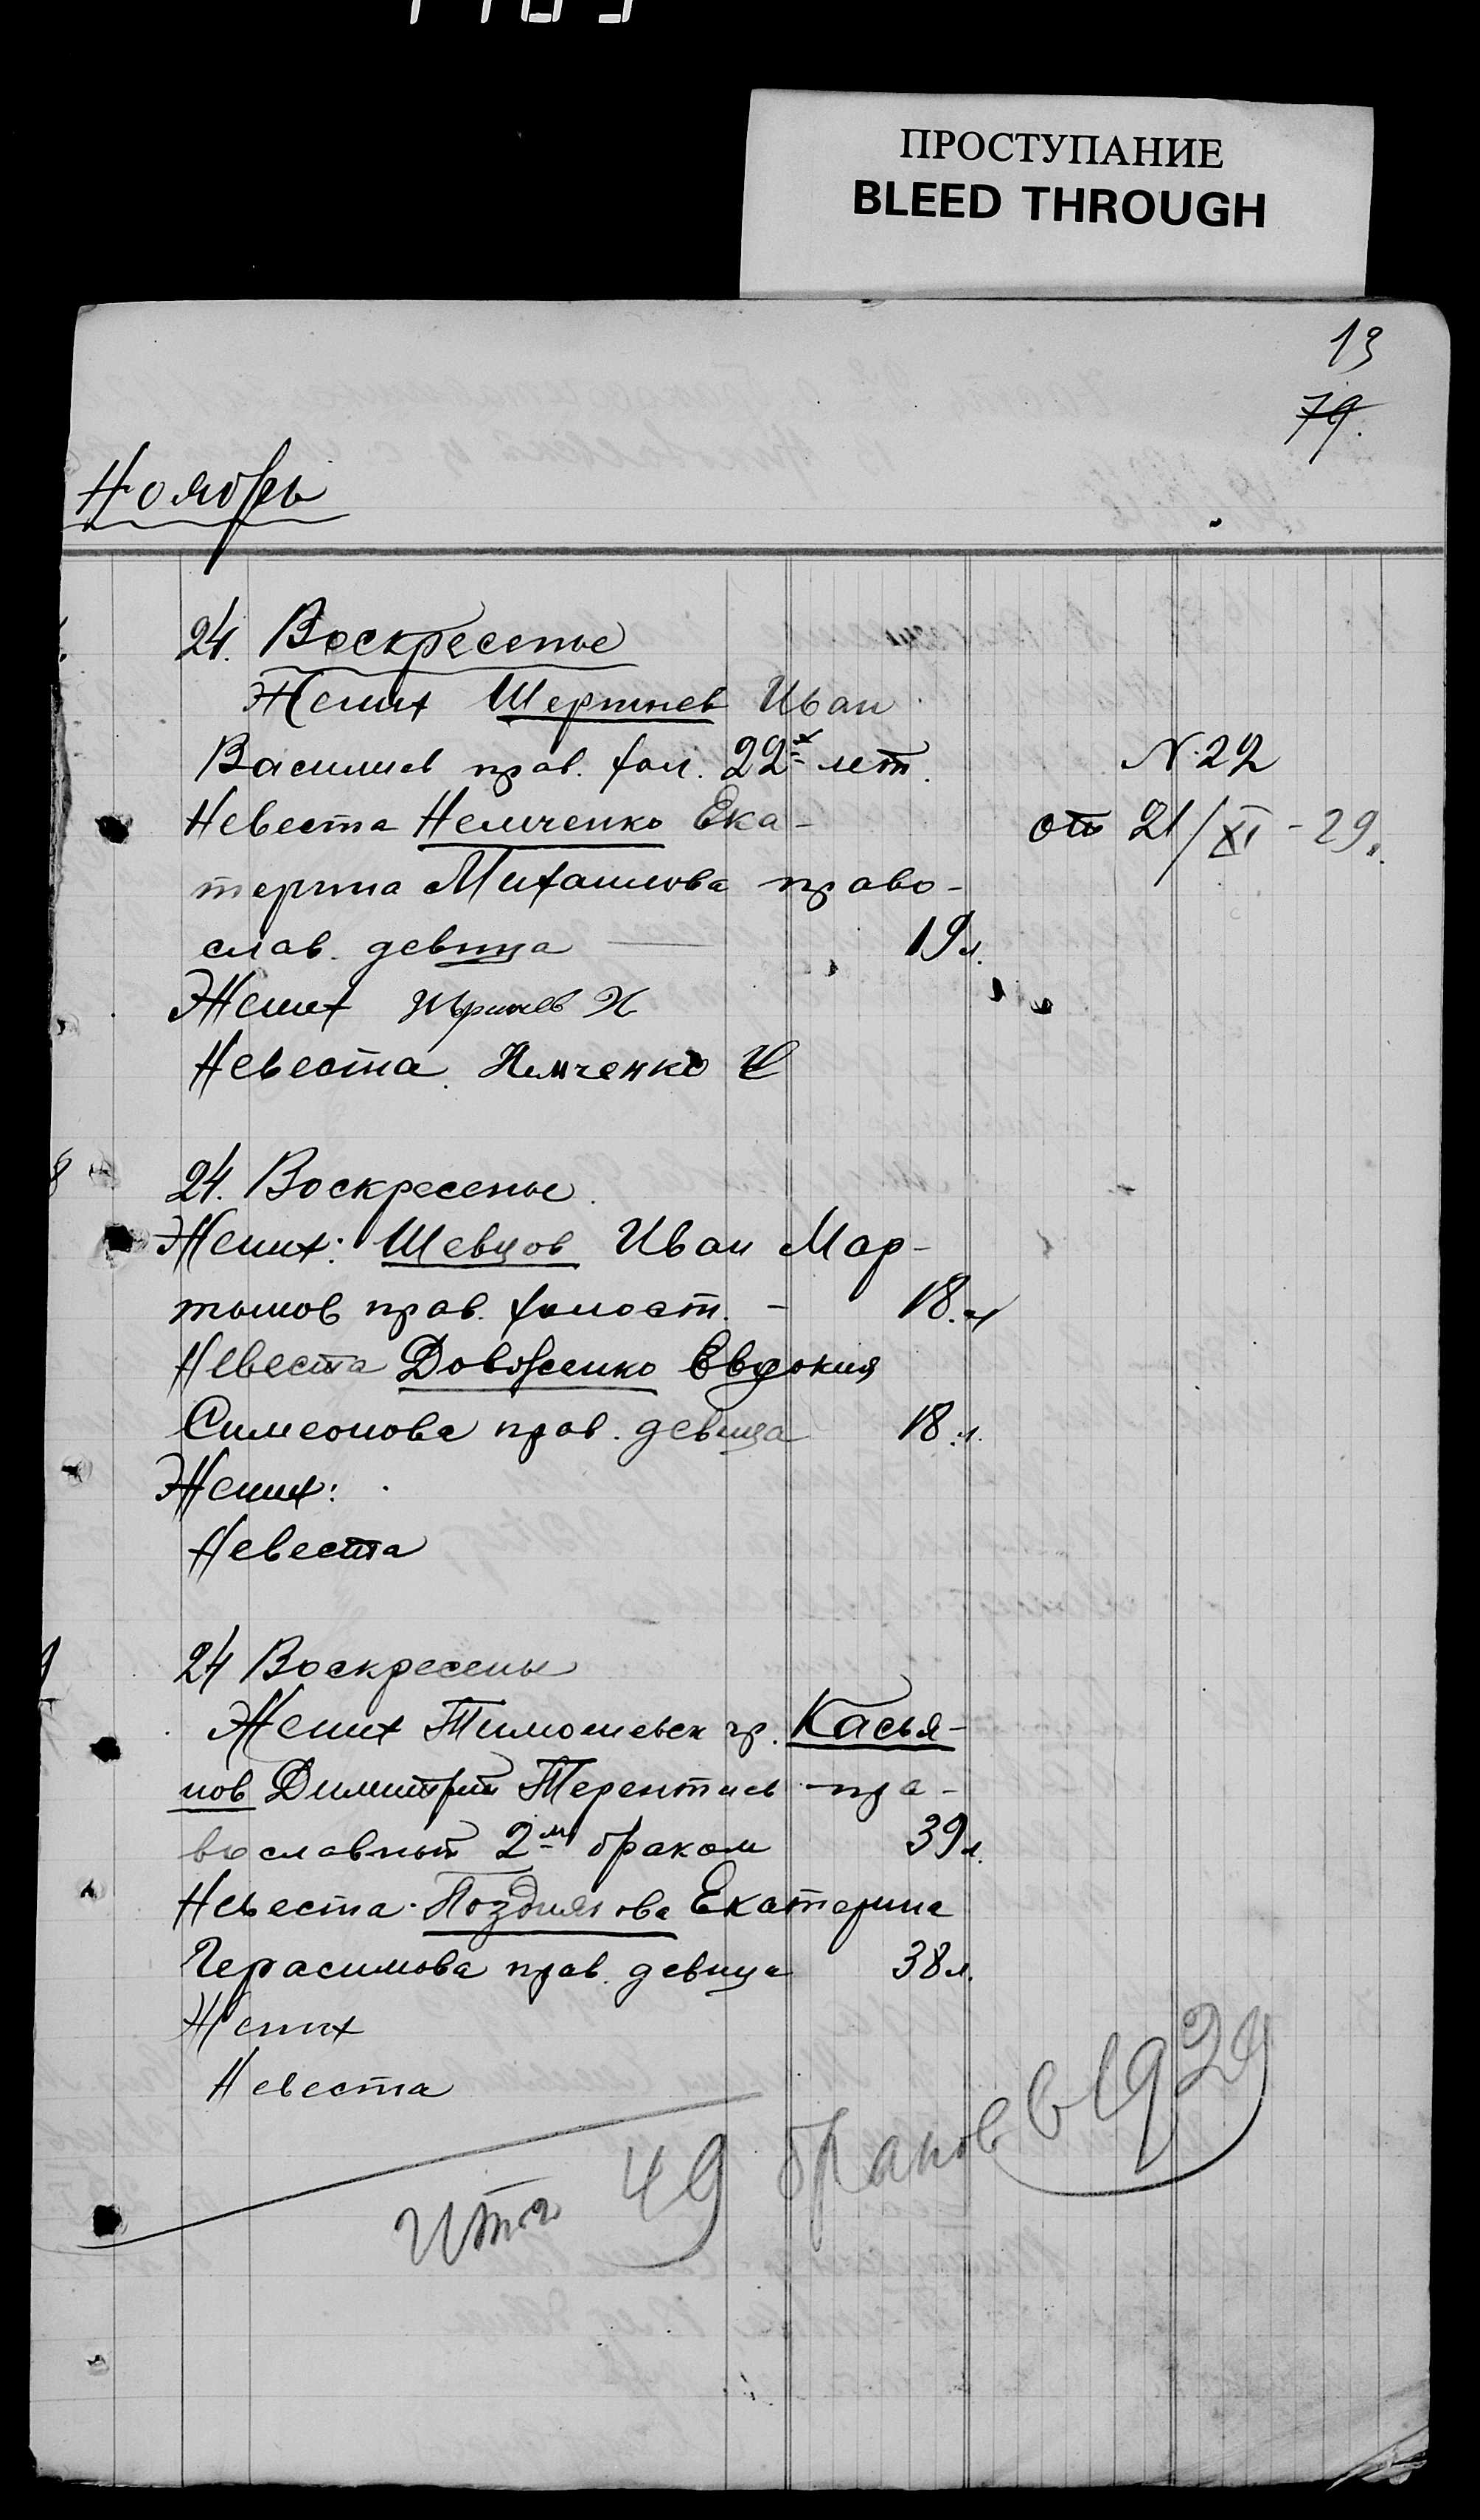 ПРОСТУПАНИЕ
BLEED THROUGH
13
79.
Ноябрь
24. Воскресенье
Жених Шершнев Иван
Васильев прав. хол. 22х лет.
N. 22
Невеста Немченко Ека-
от 21/XI - 29.
терина Михаилова право-
слав. девица — 19 л.
Жених Шершнев И
Невеста Немченко Е
8
24. Воскресенье
Жених: Шевцов Иван Мар-
тынов прав. холост. - 18. л
Невеста Довженко Евдокия
Симеонова прав. девица 18 л.
Жених:
Невеста
24 Воскресенье
Жених Тимошевск гр. Касья-
нов Димитрий Терентьев пра-
вославный 2м браком 39 л.
Невеста Позднякова Екатерина
Герасимова прав. девица 38 л.
Жених
Невеста
Итого 49 браков в 1929